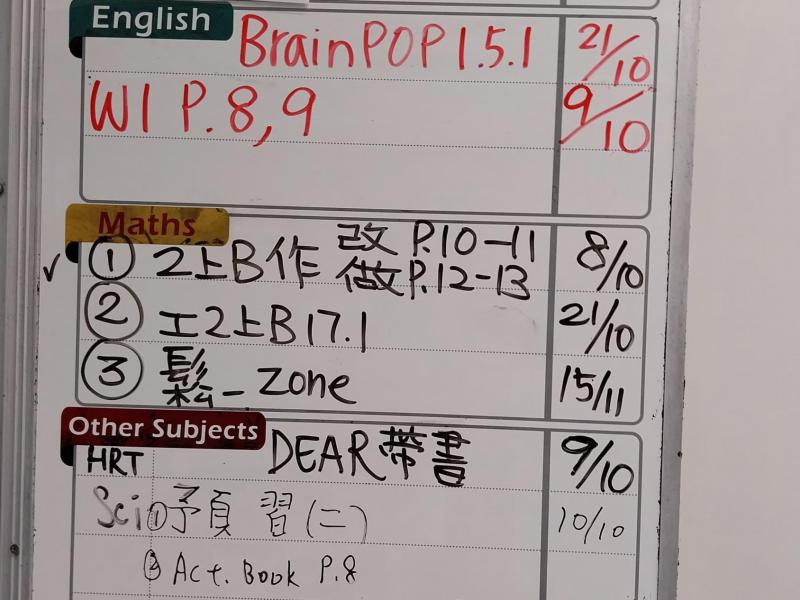 English
BrainPOP 1.5.1 21/10
W1 P.8,9 9/10
Maths
① 2上B作 改 P.10-11 8/10
做P.12-13
② 工2上B17.1 21/10
③ 鬆_zone 15/11
Other Subjects
HRT DEAR帶書 9/10
Sci ①預習(二) 10/10
② Act. Book P.8